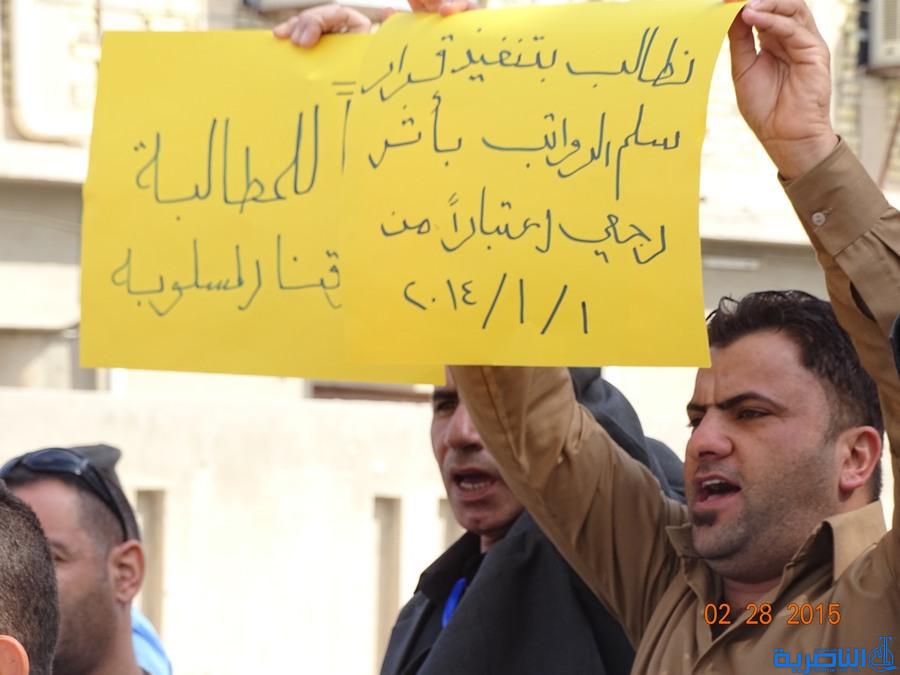 نطالب بتنفيذ قرار
سلم الرواتب بأثر
رجعي إعتباراً من
٢٠١٤/١/١
للمطالبة
المسلوبه
02 28 2015
الناصرية